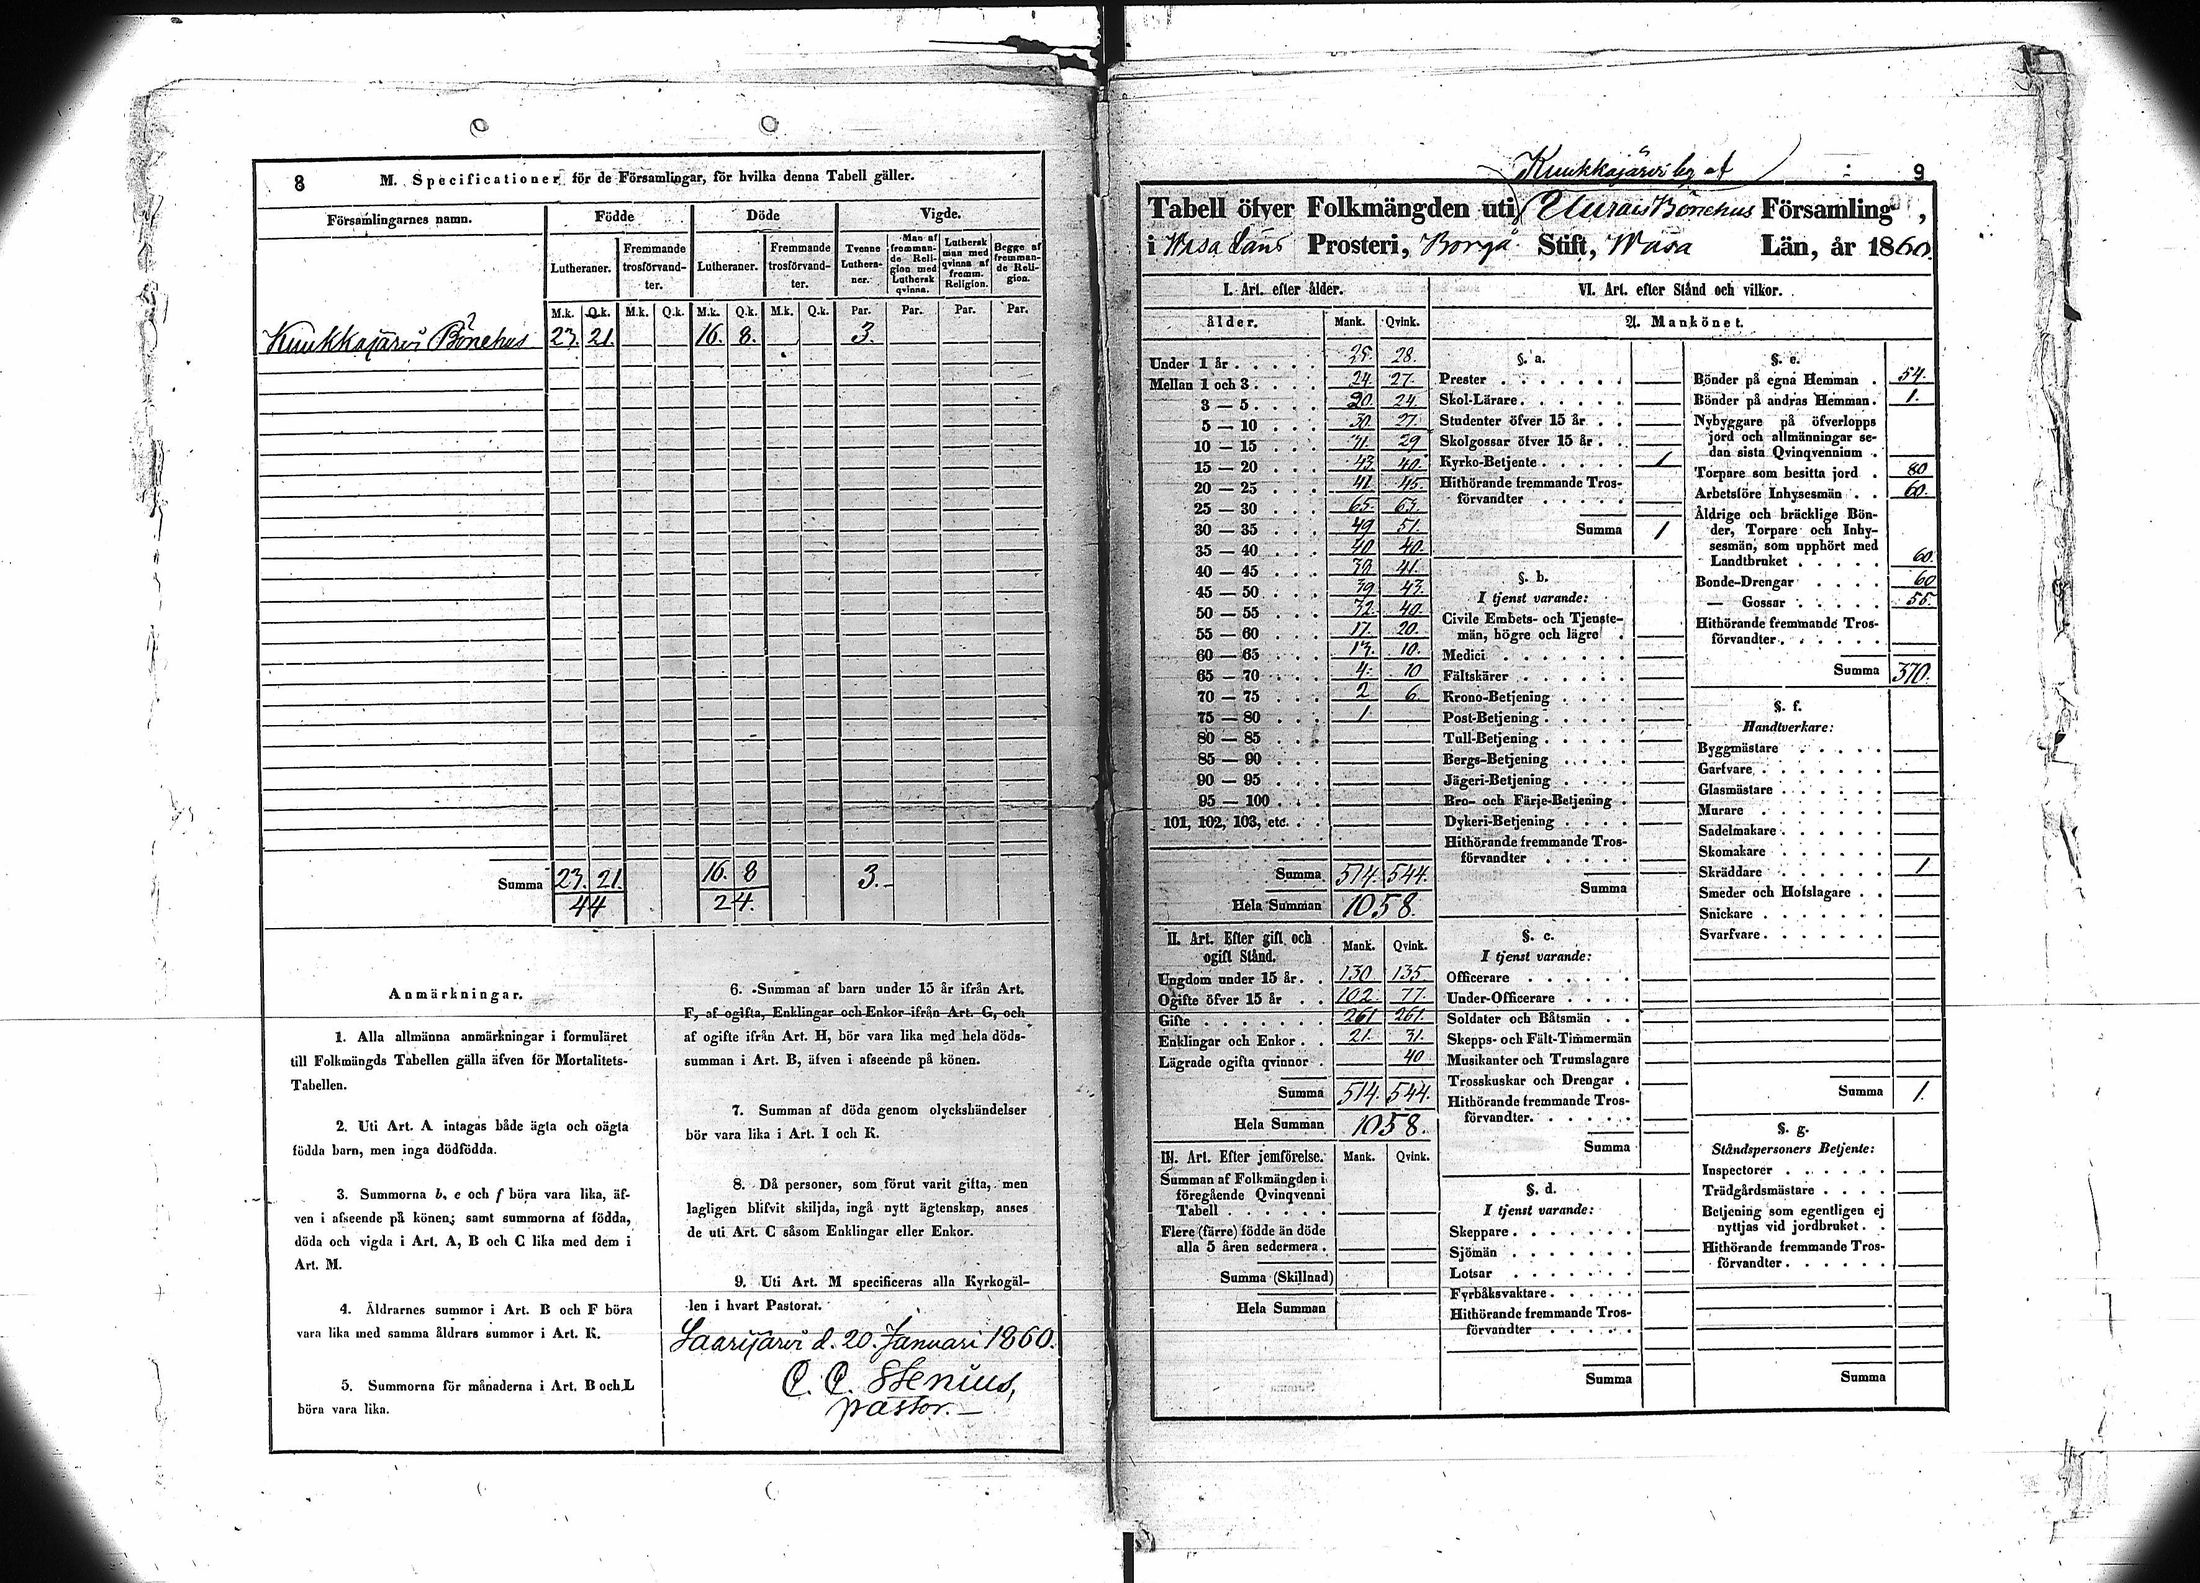 8
M. Specificationer för de Församlingar, för hvilka denna Tabell gäller.
Församlingarnes namn. Födde Döde Vigde.
Lutheraner. Fremmande trosförvandter. Lutheraner. Fremmande trosförvandter. Tvenne Lutheraner. Man af fremmande Religion med Luthersk qvinna. Luthersk man med qvinna af fremm. Religion. Begge af fremmande Religion.
M.k. Q.k. M.k. Q.k. M.k. Q.k. M.k. Q.k. Par. Par. Par. Par.
Kuukkajärvi Bönehus 23. 21. 16. 8. 3.
Summa 23. 21. 16. 8 3.-
44 24.
Anmärkningar.
1. Alla allmänna anmärkningar i formuläret
till Folkmängds Tabellen gälla äfven för Mortalitets-
Tabellen.
2. Uti Art. A intagas både ägta och oägta
födda barn, men inga dödfödda.
3. Summorna b, e och f böra vara lika, äf-
ven i afseende på könen; samt summorna af födda,
döda och vigda i Art. A, B och C lika med dem i
Art. M.
4. Äldrarnes summor i Art. B och F böra
vara lika med samma åldrars summor i Art. K.
5. Summorna för månaderna i Art. B och L
böra vara lika.
6. Summan af barn under 15 år ifrån Art.
F, af ogifta, Enklingar och Enkor ifrån Art. G, och
af ogifte ifrån Art. H, bör vara lika med hela döds-
summan i Art. B, äfven i afseende på könen.
7. Summan af döda genom olyckshändelser
bör vara lika i Art. I och K.
8. Då personer, som förut varit gifta, men
lagligen blifvit skiljda, ingå nytt ägtenskap, anses
de uti Art. C såsom Enklingar eller Enkor.
9. Uti Art. M specificeras alla Kyrkogäl-
len i hvart Pastorat.
Saarijärvi d. 20. Januari 1860.
C. C. Stenius,
pastor.-
9
Kuukkajärvi by af
Tabell öfver Folkmängden uti Uurais Bönehus Församling,
i Wasa Läns Prosteri, Borgå Stift, Wasa Län, år 1860.
I. Art. efter ålder.
ålder. Mank. Qvink.
Under 1 år 25. 28.
Mellan 1 och 3 24. 27.
3 — 5 20. 24.
5 — 10 30. 27.
10 — 15 31. 29
15 — 20 43 40.
20 — 25 41. 45
25 — 30 65. 63.
30 — 35 49 51.
35 — 40 40 40.
40 — 45 39 41.
45 — 50 39 43.
50 — 55 32. 40.
55 — 60 17. 20.
60 — 65 13. 10.
65 — 70 4. 10
70 — 75 2 6.
75 — 80 1.
80 — 85
85 — 90
90 — 95
95 — 100
101, 102, 103, etc.
Summa 514. 544.
Hela Summan 1058.
II. Art. Efter gift och ogift Stånd. Mank. Qvink.
Ungdom under 15 år 130 135.
Ogifte öfver 15 år 102. 77.
Gifte 261 261.
Enklingar och Enkor 21. 31.
Lägrade ogifta qvinnor 40
Summa 514. 544.
Hela Summan 1058.
III. Art. Efter jemförelse. Mank. Qvink.
Summan af Folkmängden i
föregående Qvinqvenni
Tabell
Flere (färre) födde än döde
alla 5 åren sedermera.
Summa (Skillnad)
Hela Summan
VI. Art. efter Stånd och vilkor.
A. Mankönet.
§. a.
Prester
Skol-Lärare
Studenter öfver 15 år
Skolgossar öfver 15 år
Kyrko-Betjente 1
Hithörande fremmande Tros-
förvandter
Summa 1
§. b.
I tjenst varande:
Civile Embets- och Tjenste-
män, högre och lägre
Medici
Fältskärer
Krono-Betjening
Post-Betjening
Tull-Betjening
Bergs-Betjening
Jägeri-Betjening
Bro- och Färje-Betjening
Dykeri-Betjening
Hithörande fremmande Tros-
förvandter
Summa
§. c.
I tjenst varande:
Officerare
Under-Officerare
Soldater och Båtsmän
Skepps- och Fält-Timmermän
Musikanter och Trumslagare
Trosskuskar och Drengar
Hithörande fremmande Tros-
förvandter.
Summa
§. d.
I tjenst varande:
Skeppare
Sjömän
Lotsar
Fyrbåksvaktare
Hithörande fremmande Tros-
förvandter
Summa
§. e.
Bönder på egna Hemman 54.
Bönder på andras Hemman 1.
Nybyggare på öfverlopps
jord och allmänningar se-
dan sista Qvinqvennium
Torpare som besitta jord 80
Arbetsföre Inhysesmän 60.
Åldrige och bräcklige Bön-
der, Torpare och Inhy-
sesmän, som upphört med
Landtbruket 60.
Bonde-Drengar 60
— Gossar 55.
Hithörande fremmande Tros-
förvandter
Summa 370.
§. f.
Handtverkare:
Byggmästare
Garfvare
Glasmästare
Murare
Sadelmakare
Skomakare
Skräddare 1
Smeder och Hofslagare
Snickare
Svarfvare
Summa 1.
§. g.
Ståndspersoners Betjente:
Inspectorer
Trädgårdsmästare
Betjening som egentligen ej
nyttjas vid jordbruket
Hithörande fremmande Tros-
förvandter
Summa